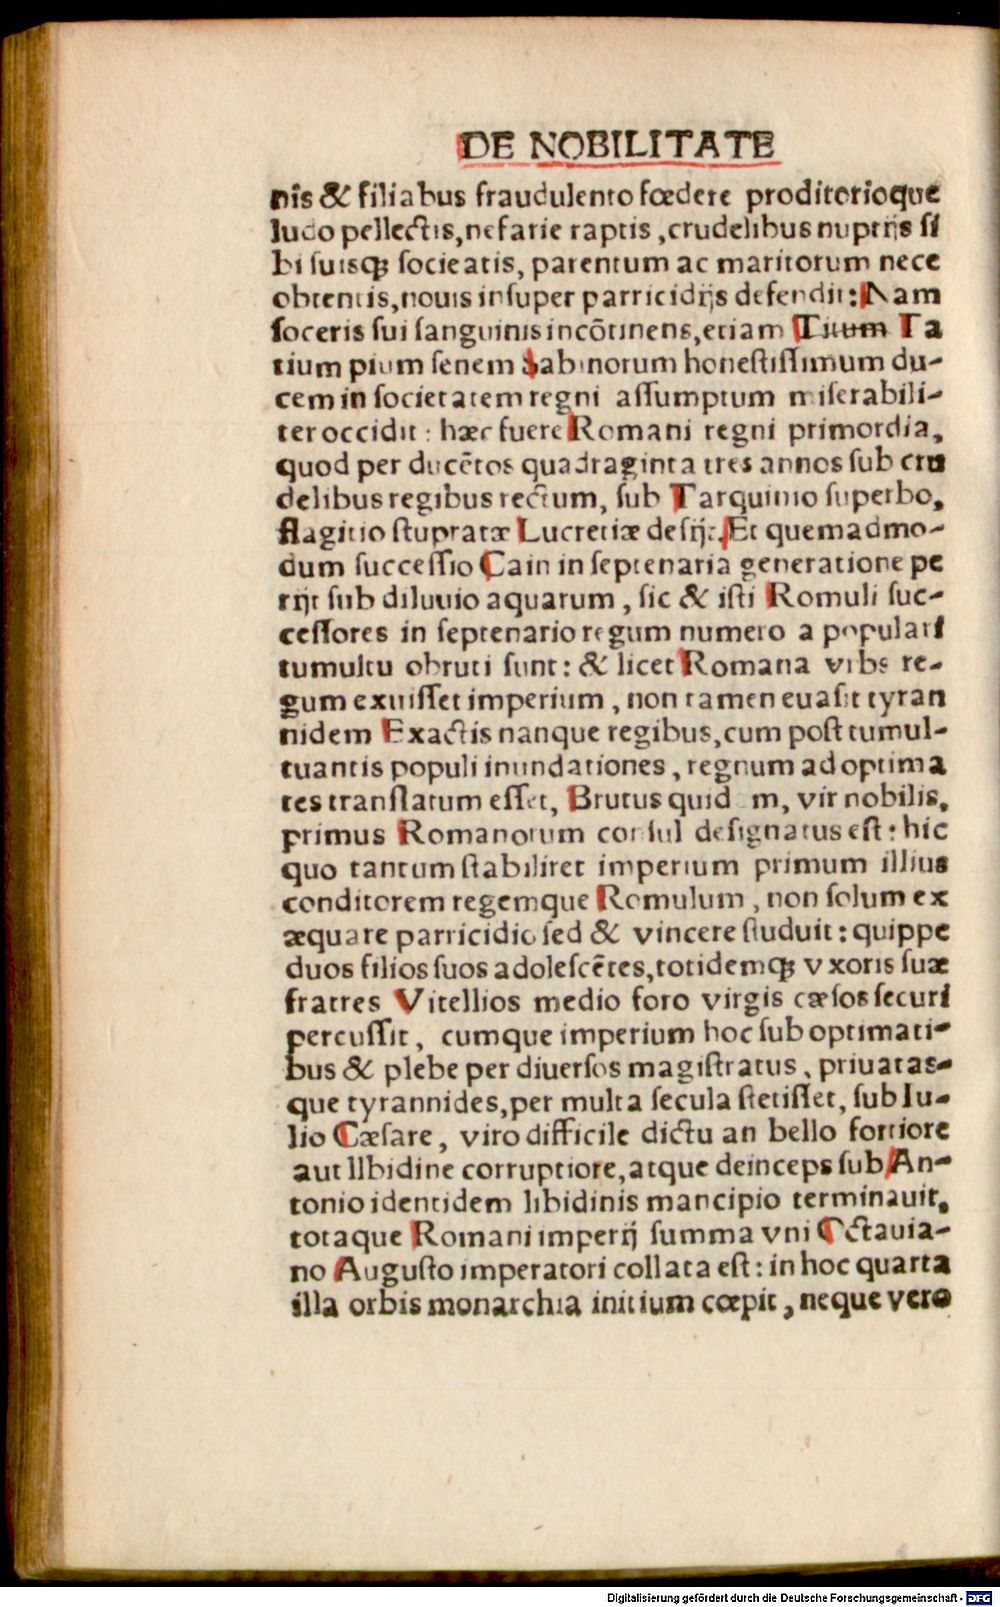 DE NOBILITATE
nis & filiabus fraudulento fœdere proditorioque
ludo pellectis, nefarie raptis, crudelibus nuptijs si
bi suisqꝫ socieatis, parentum ac maritorum nece
obtentis, nouis insuper parricidijs defendit: Nam
soceris sui sanguinis incōtinens, etiam Titum Ta
tium pium senem Sabinorum honestissimum du-
cem in societatem regni assumptum miserabili-
ter occidit: hæc fuere Romani regni primordia,
quod per ducētos quadraginta tres annos sub cru
delibus regibus rectum, sub Tarquinio superbo,
flagitio stupratæ Lucretiæ desijt. Et quemadmo-
dum successio Cain in septenaria generatione pe
rijt sub diluuio aquarum, sic & isti Romuli suc-
cessores in septenario regum numero a populari
tumultu obruti sunt: & licet Romana vrbs re-
gum exuisset imperium, non tamen euasit tyran
nidem Exactis nanque regibus, cum post tumul-
tuantis populi inundationes, regnum ad optima
tes translatum esset, Brutus quid m, vir nobilis,
primus Romanorum consul designatus est: hic
quo tantum stabiliret imperium primum illius
conditorem regemque Romulum, non solum ex
æquare parricidio sed & vincere studuit: quippe
duos filios suos adolescētes, totidemqꝫ vxoris suæ
fratres Vitellios medio foro virgis cæsos securi
percussit, cumque imperium hoc sub optimati-
bus & plebe per diuersos magistratus, priuatas-
que tyrannides, per multa secula stetisset, sub Iu-
lio Cæsare, viro difficile dictu an bello fortiore
aut lIbidine corruptiore, atque deinceps sub An-
tonio identidem libidinis mancipio terminauit,
totaque Romani imperij summa vni Octauia-
no Augusto imperatori collata est: in hoc quarta
illa orbis monarchia initium cœpit, neque vero
Digitalisierung gefördert durch die Deutsche Forschungsgemeinschaft - DFG